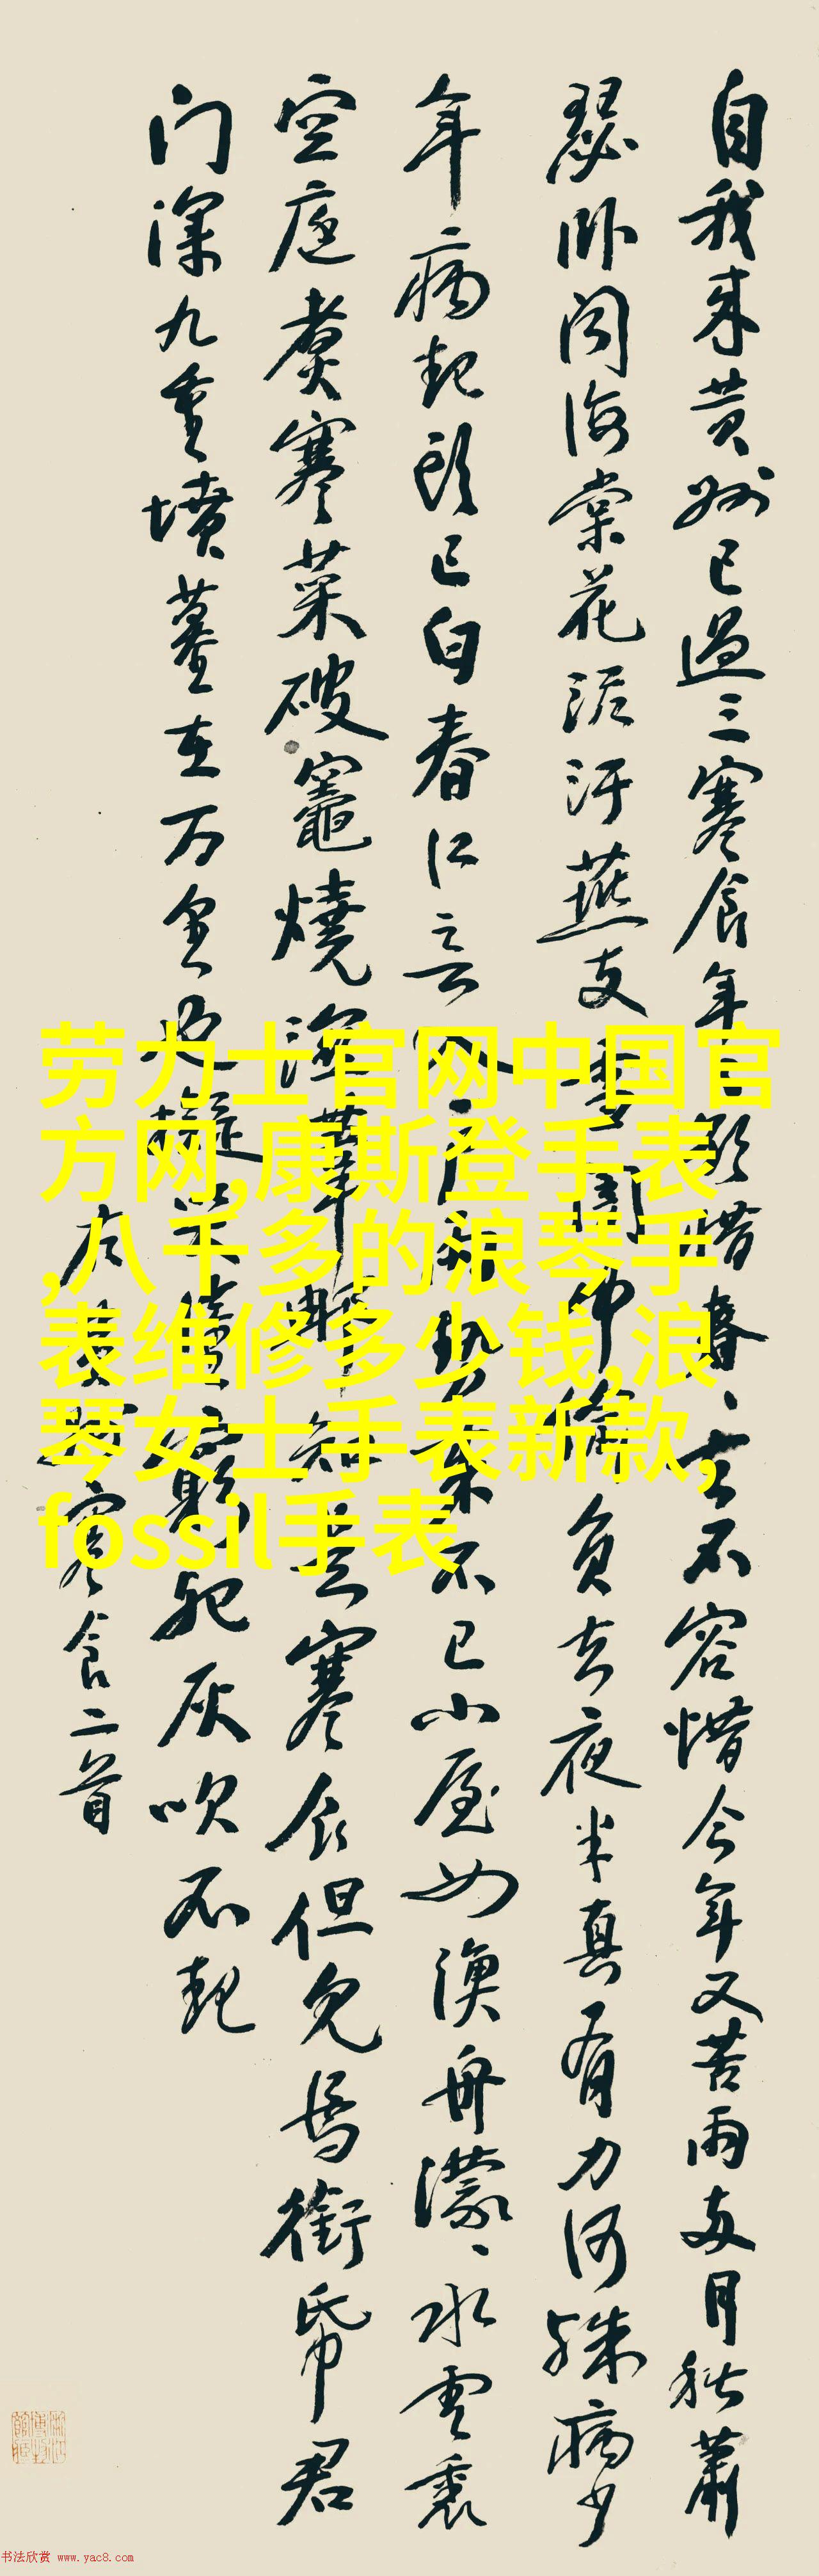 自我来黄州已過三寒食年〻欲惜春〻去不容惜今年又苦雨两月秋蕭
瑟卧闻海棠花泥汙燕支雪闇中偷負去夜半真有力何殊病少
年病起頭已白春江入户雨勢来不已小屋如漁舟濛〻水雲裏
空庭煮寒菜破竈燒濕葦那知是寒食但見烏銜帋君
门深九重墳墓在万里也擬哭塗窮死灰吹不起
右黄州寒食二首
劳力士官网中国官
方网,康斯登手表
,八千多的浪琴手
表维修多少钱,浪
琴女士手表新款,
fossil手表
书法欣赏 www.yac8.com